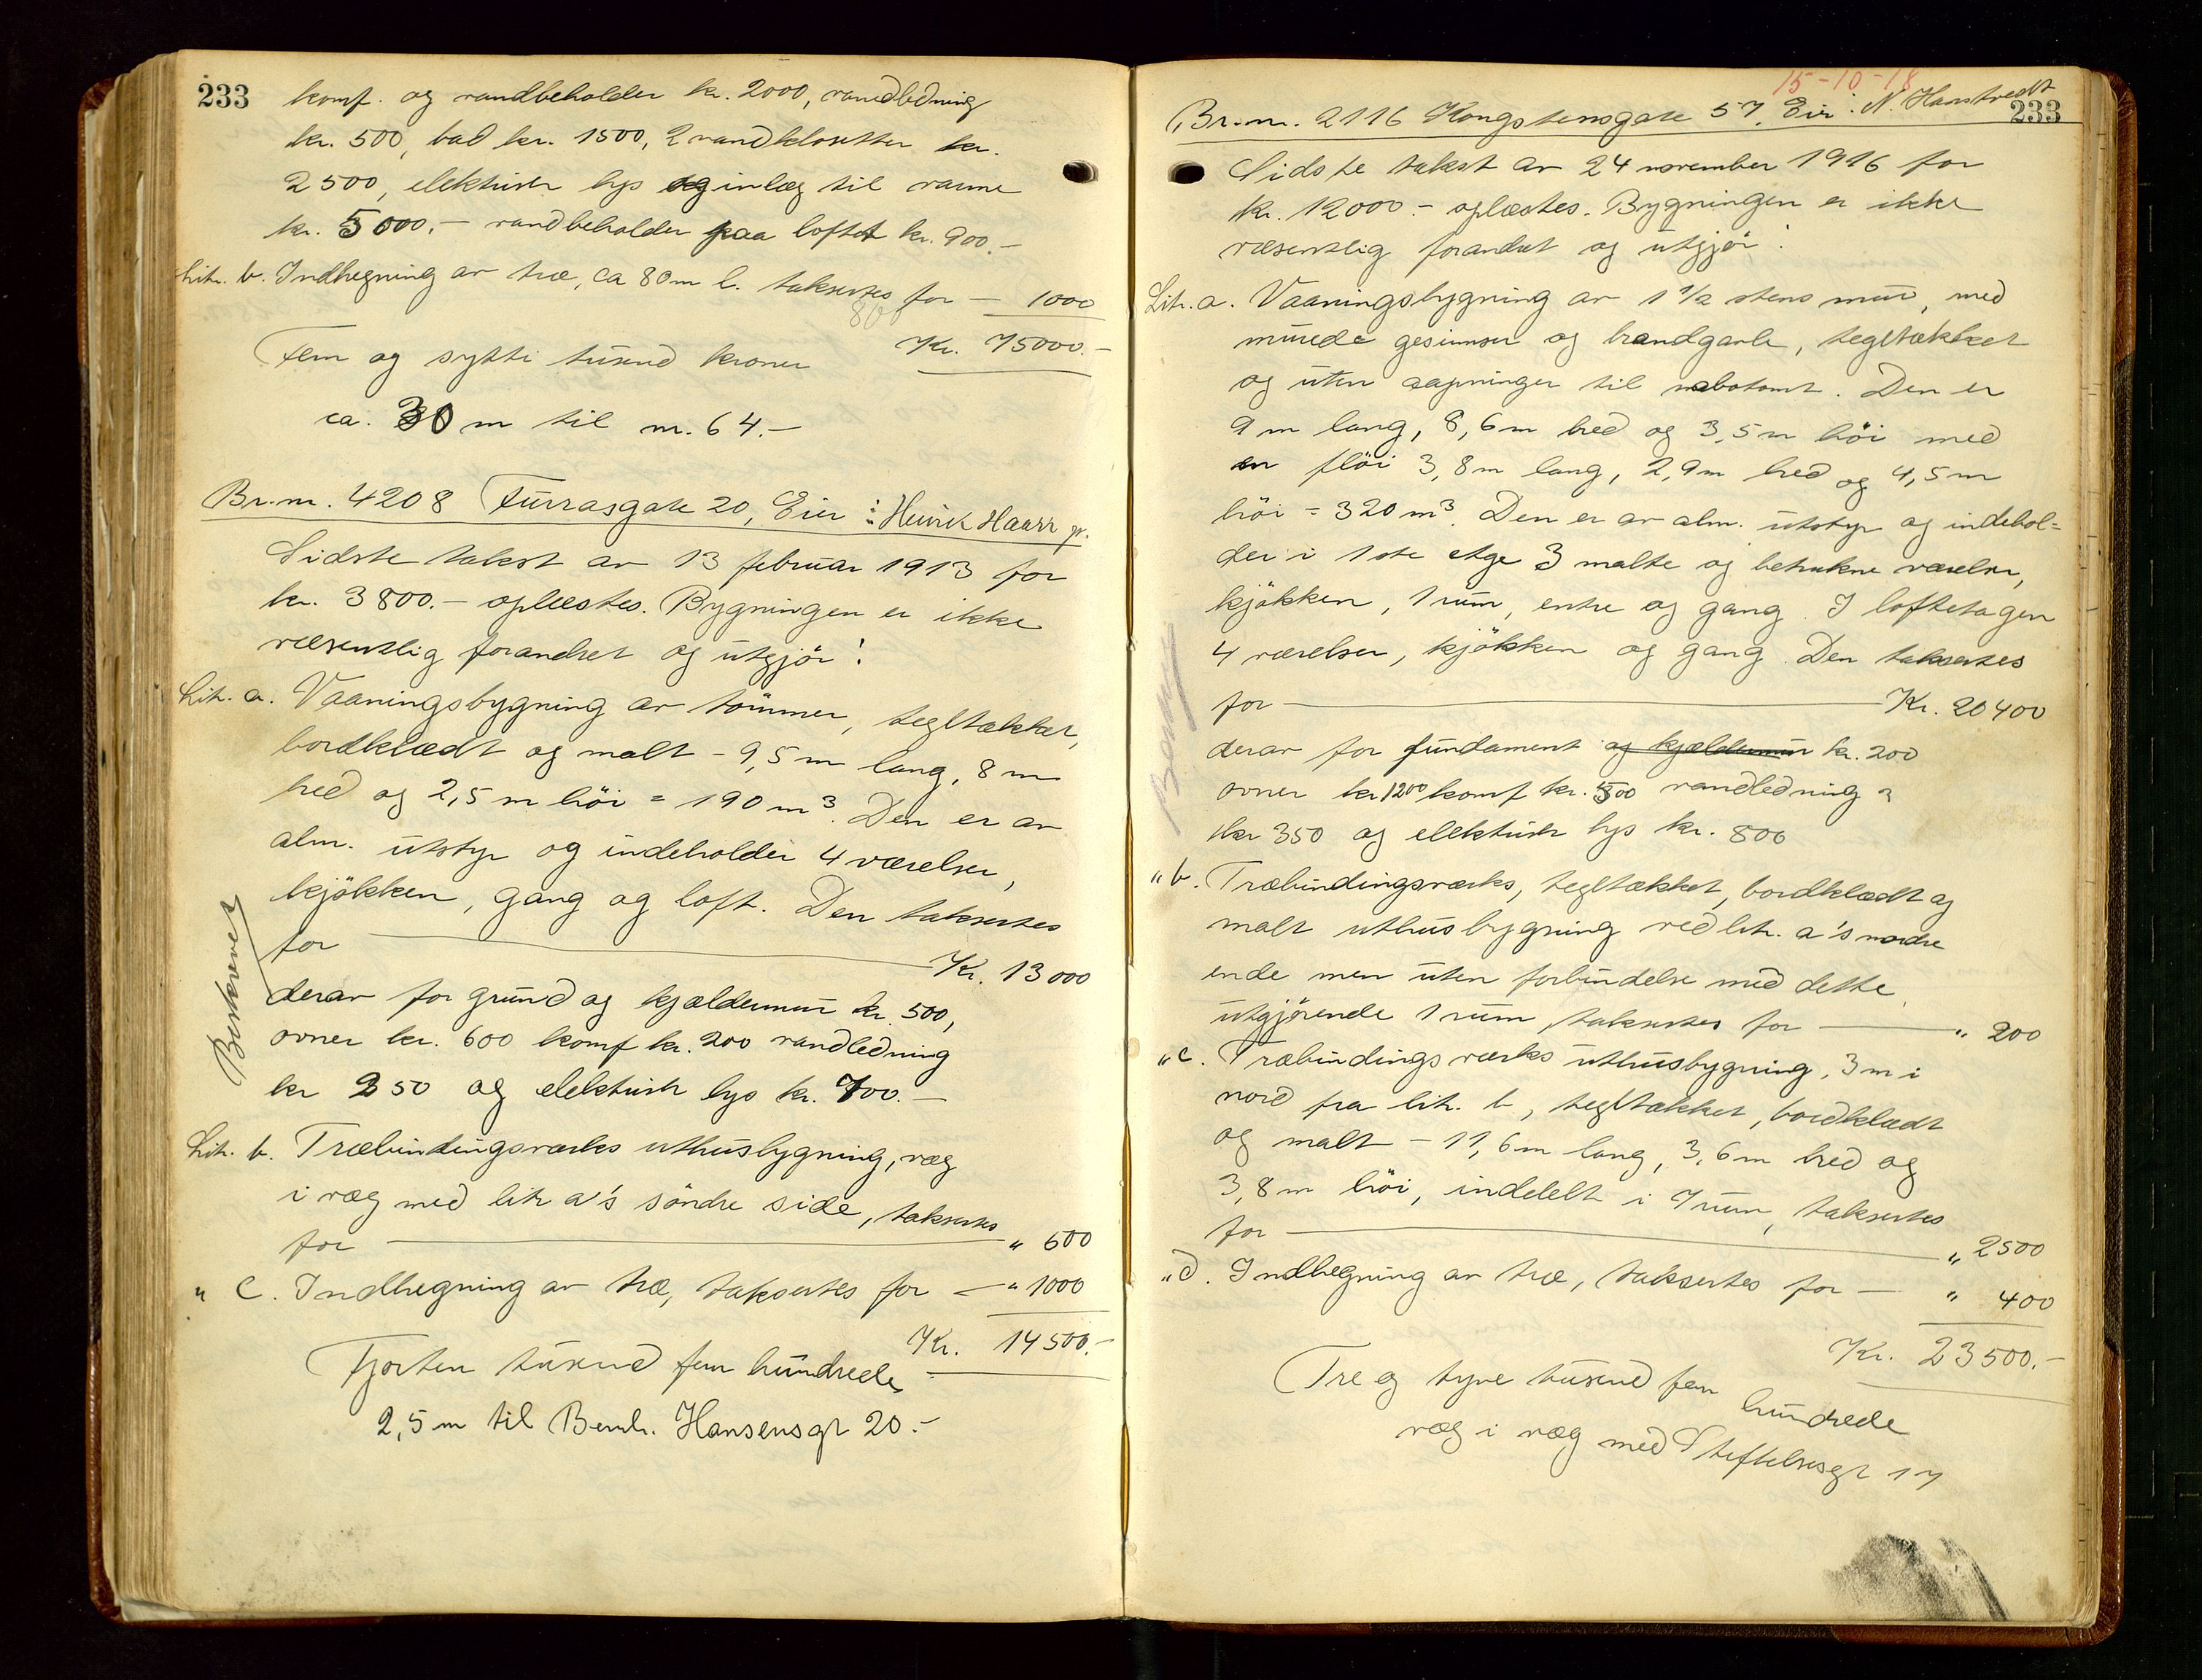 233
komf. og vandbeholder kr. 2000, vandledning
kr. 500, bad kr. 1500, 2 vandklosetter kr.
2500, elektrisk lys og inlæg til varme
kr. 5000.- vandbeholder paa loftet kr. 900.-
Litr. b. Indhegning av træ, ca 80 m l. takseres for — 1000
800
Kr. 75000.-
Fem og sytti tusend kroner
ca. 30 m til nr. 64.-
Br. nr. 4208 Furrasgate 20, Eier: Henrik Haarr jr.
Sidste takst av 13 februar 1913 for
kr. 3800.- oplæstes. Bygningen er ikke
væsentlig forandret og utgjör:
Litr. a. Vaaningsbygning av tömmer, tegltækket,
bordklædt og malt - 9,5 m lang, 8 m
bred og 2,5 m höi = 190 m³. Den er av
alm. utstyr og indeholder 4 værelser,
kjökken, gang og loft. Den takseres
for — Kr. 13000
derav for grund og kjældermur kr. 500,
ovner kr. 600 komf kr. 200 vandledning
kr 250 og elektrisk lys kr. 700.-
Beskrevet
Litr. b. Træbindingsværks uthusbygning, væg
i væg med litr a's söndre side, takseres
for — " 500
" c. Indhegning av træ, takseres for — " 1000
Kr. 14500.-
Fjorten tusend fem hundrede
2,5 m til Bernh. Hansensgt 20.-
15-10-18
233
Br. nr. 2116 Kongstensgate 57. Eier: N. Haastvedt
Sidste takst av 24 november 1916 for
kr. 12000.- oplæstes. Bygningen er ikke
væsentlig forandret og utgjör:
Litr. a. Vaaningsbygning av 1 1/2 stens mur, med
murede gesimser og brandgavle, tegltækket
og uten aapninger til nabotomt. Den er
9 m lang, 8,6 m bred og 3,5 m höi med
en flöi 3,8 m lang, 2,9 m bred og 4,5 m
höi = 320 m³. Den er av alm. utstyr og indehol=
der i 1ste etge 3 malte og betrukne værelser,
kjökken, 1 rum, entre og gang. I loftetagen
4 værelser, kjökken og gang. Den takseres
for — Kr. 20400
derav for fundament og kjældermur kr. 200
ovner kr 1200 komf kr. 500 vandledning
kr 350 og elektrisk lys kr. 800
" b. Træbindingsværks, tegltækket, bordklædt og
malt uthusbygning ved litr. a's nordre
ende men uten forbindelse med dette,
utgjörende 1 rum takseres for — " 200
" c. Træbindingsværks uthusbygning, 3 m i
nord fra litr. b, tegltækket, bordklædt
og malt - 11,6 m lang, 3,6 m bred og
3,8 m höi, indeelt i 7 rum, takseres
for — " 2500
" d. Indhegning av træ, takseres for — " 400
Kr. 23500.-
Tre og tyve tusend fem hundrede
væg i væg med Stiftelsesgt 17